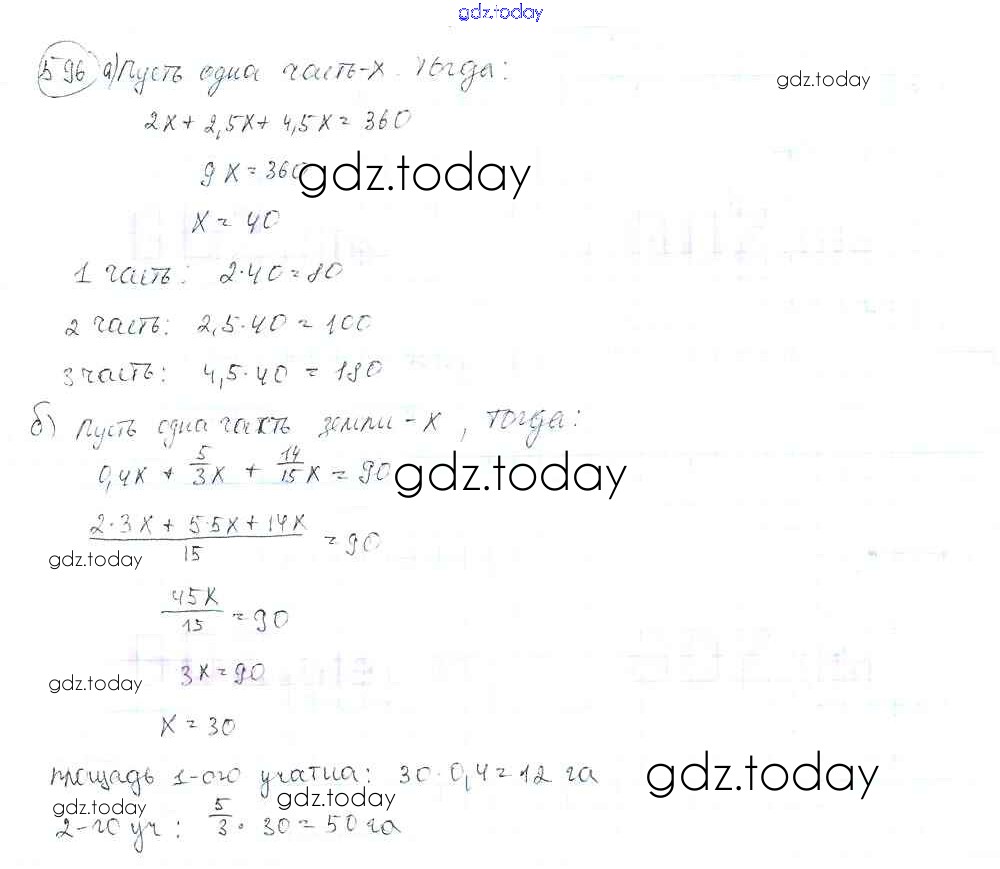 gdz.today
596 а) Пусть одна часть-х. Тогда:
gdz.today
2х + 2,5х + 4,5х = 360
9х = 360
gdz.today
х = 40
1 часть: 2·40=80
2 часть: 2,5·40 = 100
3 часть: 4,5·40 = 180
б) Пусть одна часть земли - х, тогда:
0,4х + 5/3х + 14/15х = 90
gdz.today
2·3х + 5·5х + 14х / 15 = 90
gdz.today
45х / 15 = 90
3х = 90
gdz.today
х = 30
площадь 1-ого учатка: 30·0,4=12 га
gdz.today
gdz.today
gdz.today
2-го уч: 5/3 · 30 = 50 га